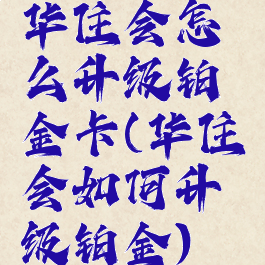 华住会怎
么升级铂
金卡(华住
会如何升
级铂金)